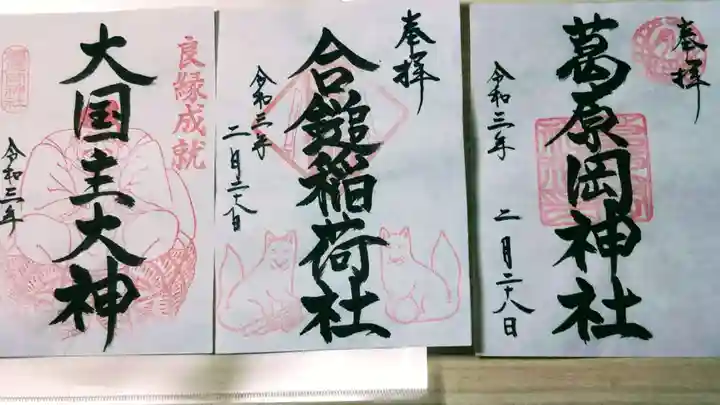 奉拝
葛原岡神社
令和三年 二月二十八日
奉拝
合鎚稲荷社
令和三年 二月二十八日
良縁成就
大国主大神
令和三年